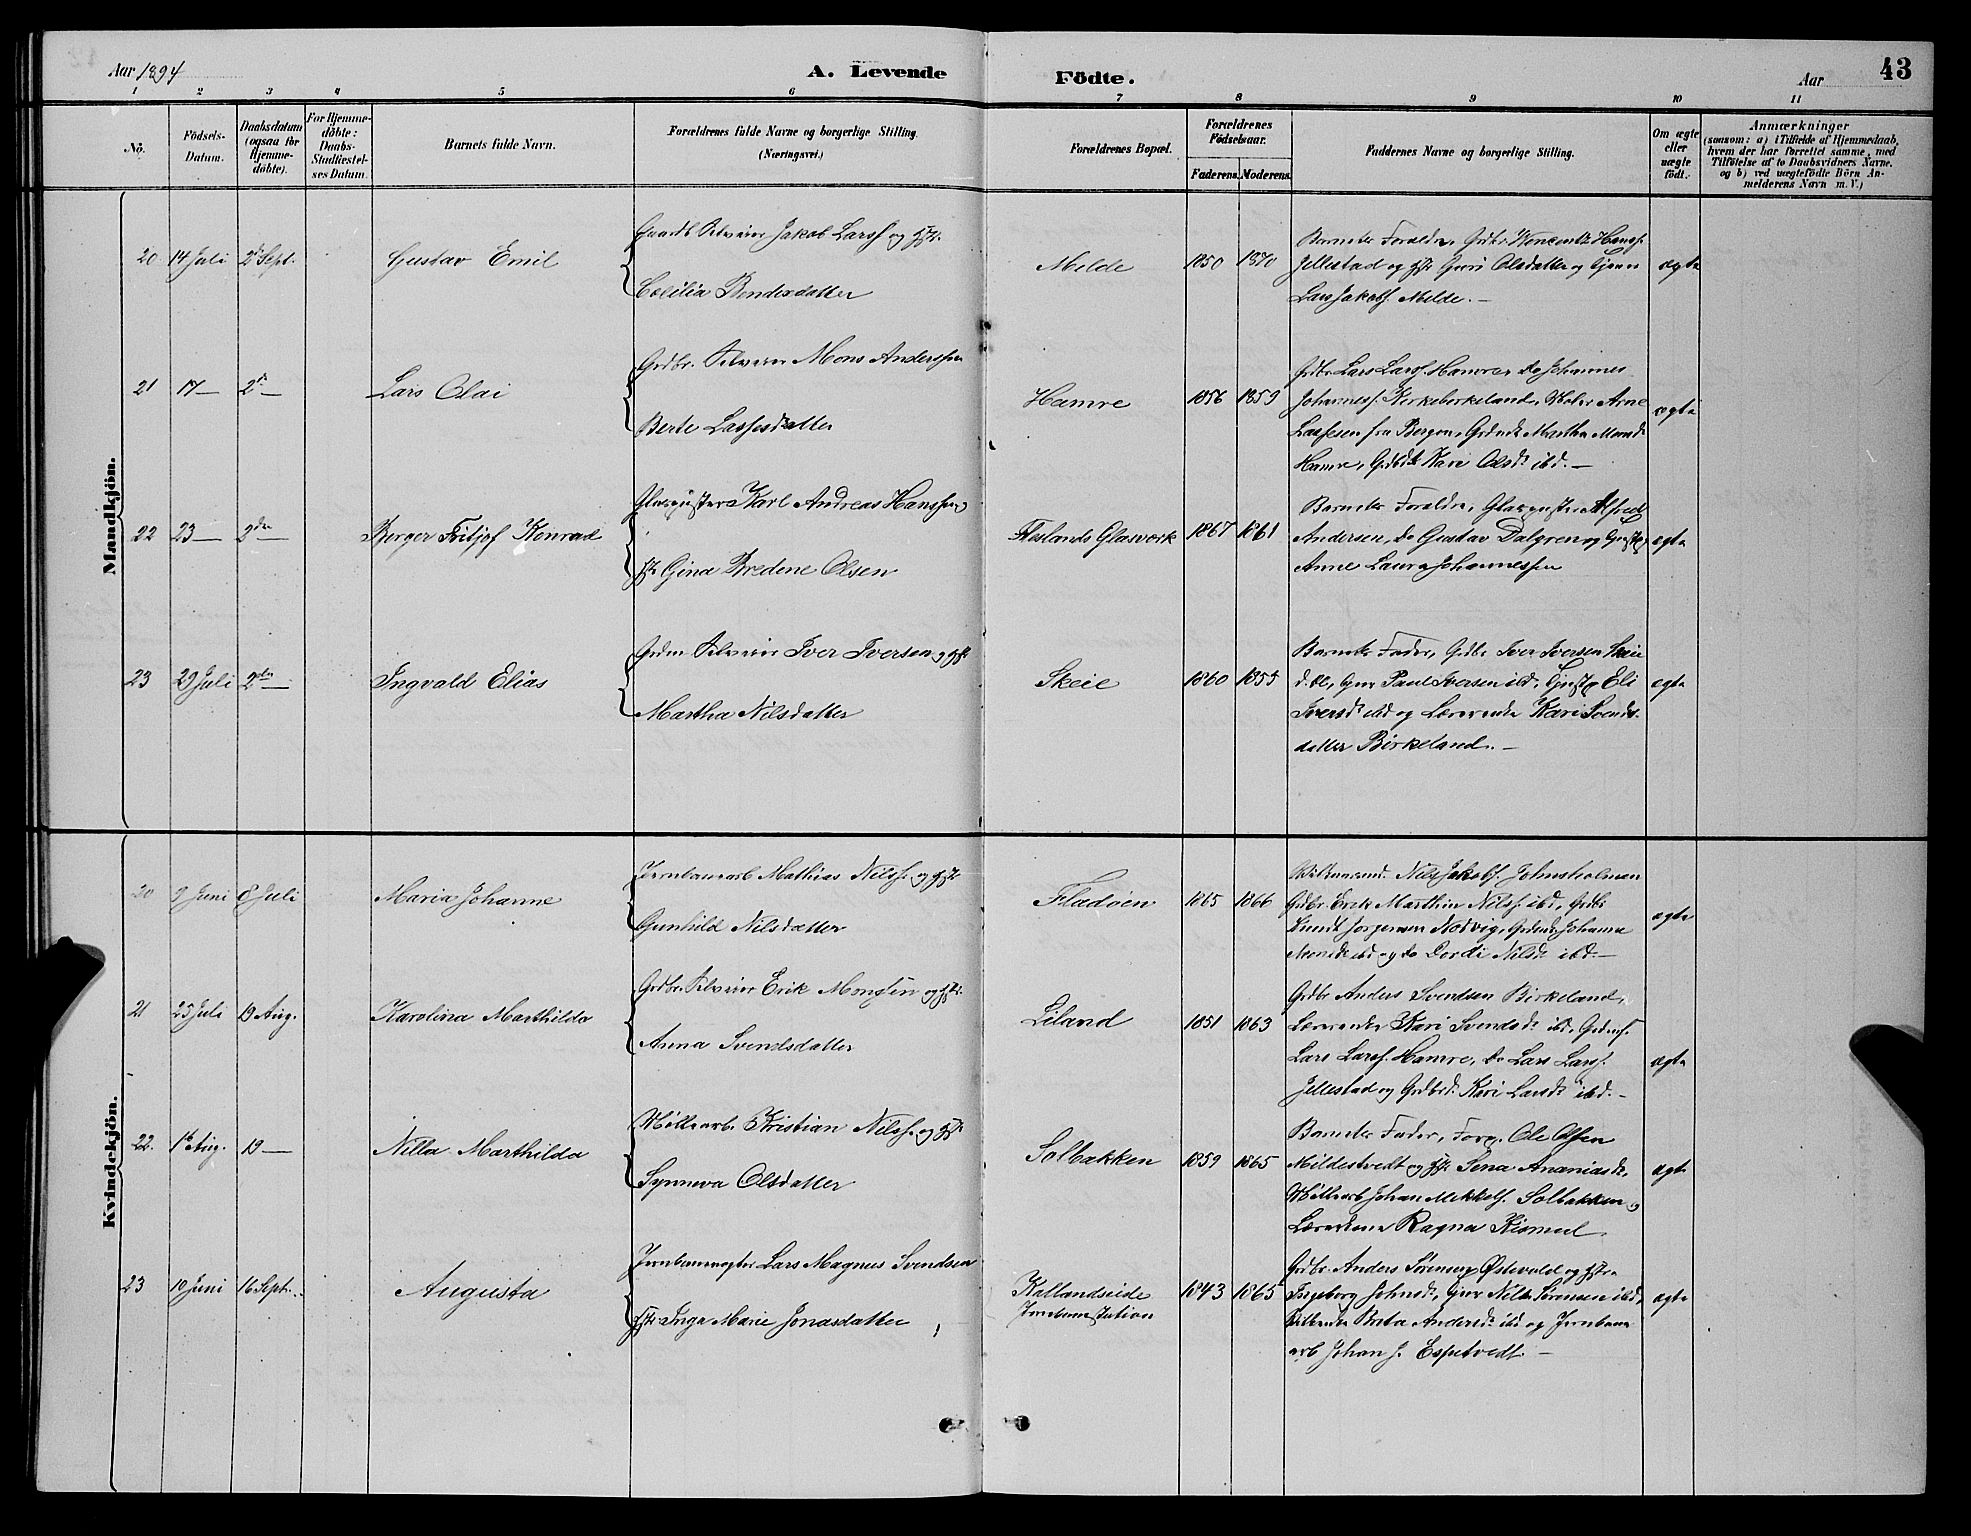 Aar 1894
A. Levende
Födte.
Aar
43
1 2 3 4 5 6 7 8 9 10 11
No.
Födsels-Datum.
Daabsdatum (ogsaa for Hjemme-döbte).
For Hjemme-döbte: Daabs-Stadfæstel-ses Datum.
Barnets fulde Navn.
Forældrenes fulde Navne og borgerlige Stilling. (Næringsvei.)
Forældrenes Bopæl.
Forældrenes Födselsaar.
Faderens. Moderens.
Faddernes Navne og borgerlige Stilling.
Om ægte eller uægte födt.
Anmærkninger
(saasom: a) i Tilfælde af Hjemmedaab, hvem der har forrettet samme, med Tilföielse af to Daabsvidners Navne, og b) ved uægtefödte Börn An-melderens Navn m. V.)
Mandkjön.
20 14 Juli 2d Sept. Gustav Emil
Gaardb Selveier Jakob Larss. og Hst.
Cecilia Bendixdatter
Milde 1850 1870
Barnets Foraldre, Grdbr Hanss.
Jellestad og Hst Guri Olsdatter og
Lars Jakobs. Milde. —
ægte
21 17 — 2d — Lars Olai
Grdbr. Selveier Mons Anderssen
Berte Lassesdatter
Hamre 1856 1859
Grdbr Lars Larss. Hamre, do Johannes
Johanness. Kirkebirkeland, Arne
Lassesen fra Bergen, Martha Monsd
Hamre, Kari Olsdt ibd. —
ægte
22 23 — 2den — Birger Fritjof Konrad
Glaspuster Karl Andreas Hanssen
Hst Gina Bredene Olsen
Fleslands Glasværk 1867 1861
Barnets Foraldre, Glaspuster Alfred
Andersen, do Gustav Dalgren og
Anne Laura Johannessen
ægte
23 29 Juli 2den — Ingvald Elias
Selveier Iver Iversen og Hst
Martha Nilsdatter
Skeie 1860 1855
Barnets Fader, Grdbr Iver Iversen Skeie
Paul Iversen ibd, Eli
Iversdt ibd og Kari Svends-
datter Birkeland. —
ægte
Kvindekjön.
20 9 Juni 8 Juli Maria Johanne
Jernbanearb Mathias Nilss. og Hst
Gunhild Nilsdatter
Fladöen 1865 1866
Nils Jakobs. Johnsholmen
Grdbr. Erik Marthin Nilss. ibd, Grdbr
Knud Jorgensen Nodvig, Johanne
Monsdt ibd og do Dordi Nilsdt ibd. —
ægte
21 25 Juli 19 Aug. Karolina Marthilda
Grdbr. Selveier Erik Monsen og Hst.
Anna Svendsdatter
Liland 1851 1863
Grdbr Anders Svendsen Birkeland,
Kari Svendsdt ibd,
Lars Larss. Hamre, do Lars Larss.
Jellestad og Kari Larsdt ibd. —
ægte
22. 1st Aug. 19 — Nilla Marthilda
Möllearb. Kristian Nilss. og Hst
Synneva Olsdatter
Solbakken 1859 1865
Barnets Fader, Forp. Ole Olsen
Mildestvedt og Hst Sena Ananiasdt,
Möllearb Johan Mikkels. Solbakken og
Ragna
ægte
23 10 Juni 16 Sept. Augusta
Jernbanevogter Lars Magnus Svendsen
Hst Inga Marie Jonasdatter
Kallandseide
Jernbanestation
1843 1865
Grdbr. Anders Sörensen Östevold og Hst
Ingeborg Johnsdt, Nils Sörensen ibd,
Brita Andersdt ibd og Jernbane
arb Johan J. Espetvedt. —
ægte